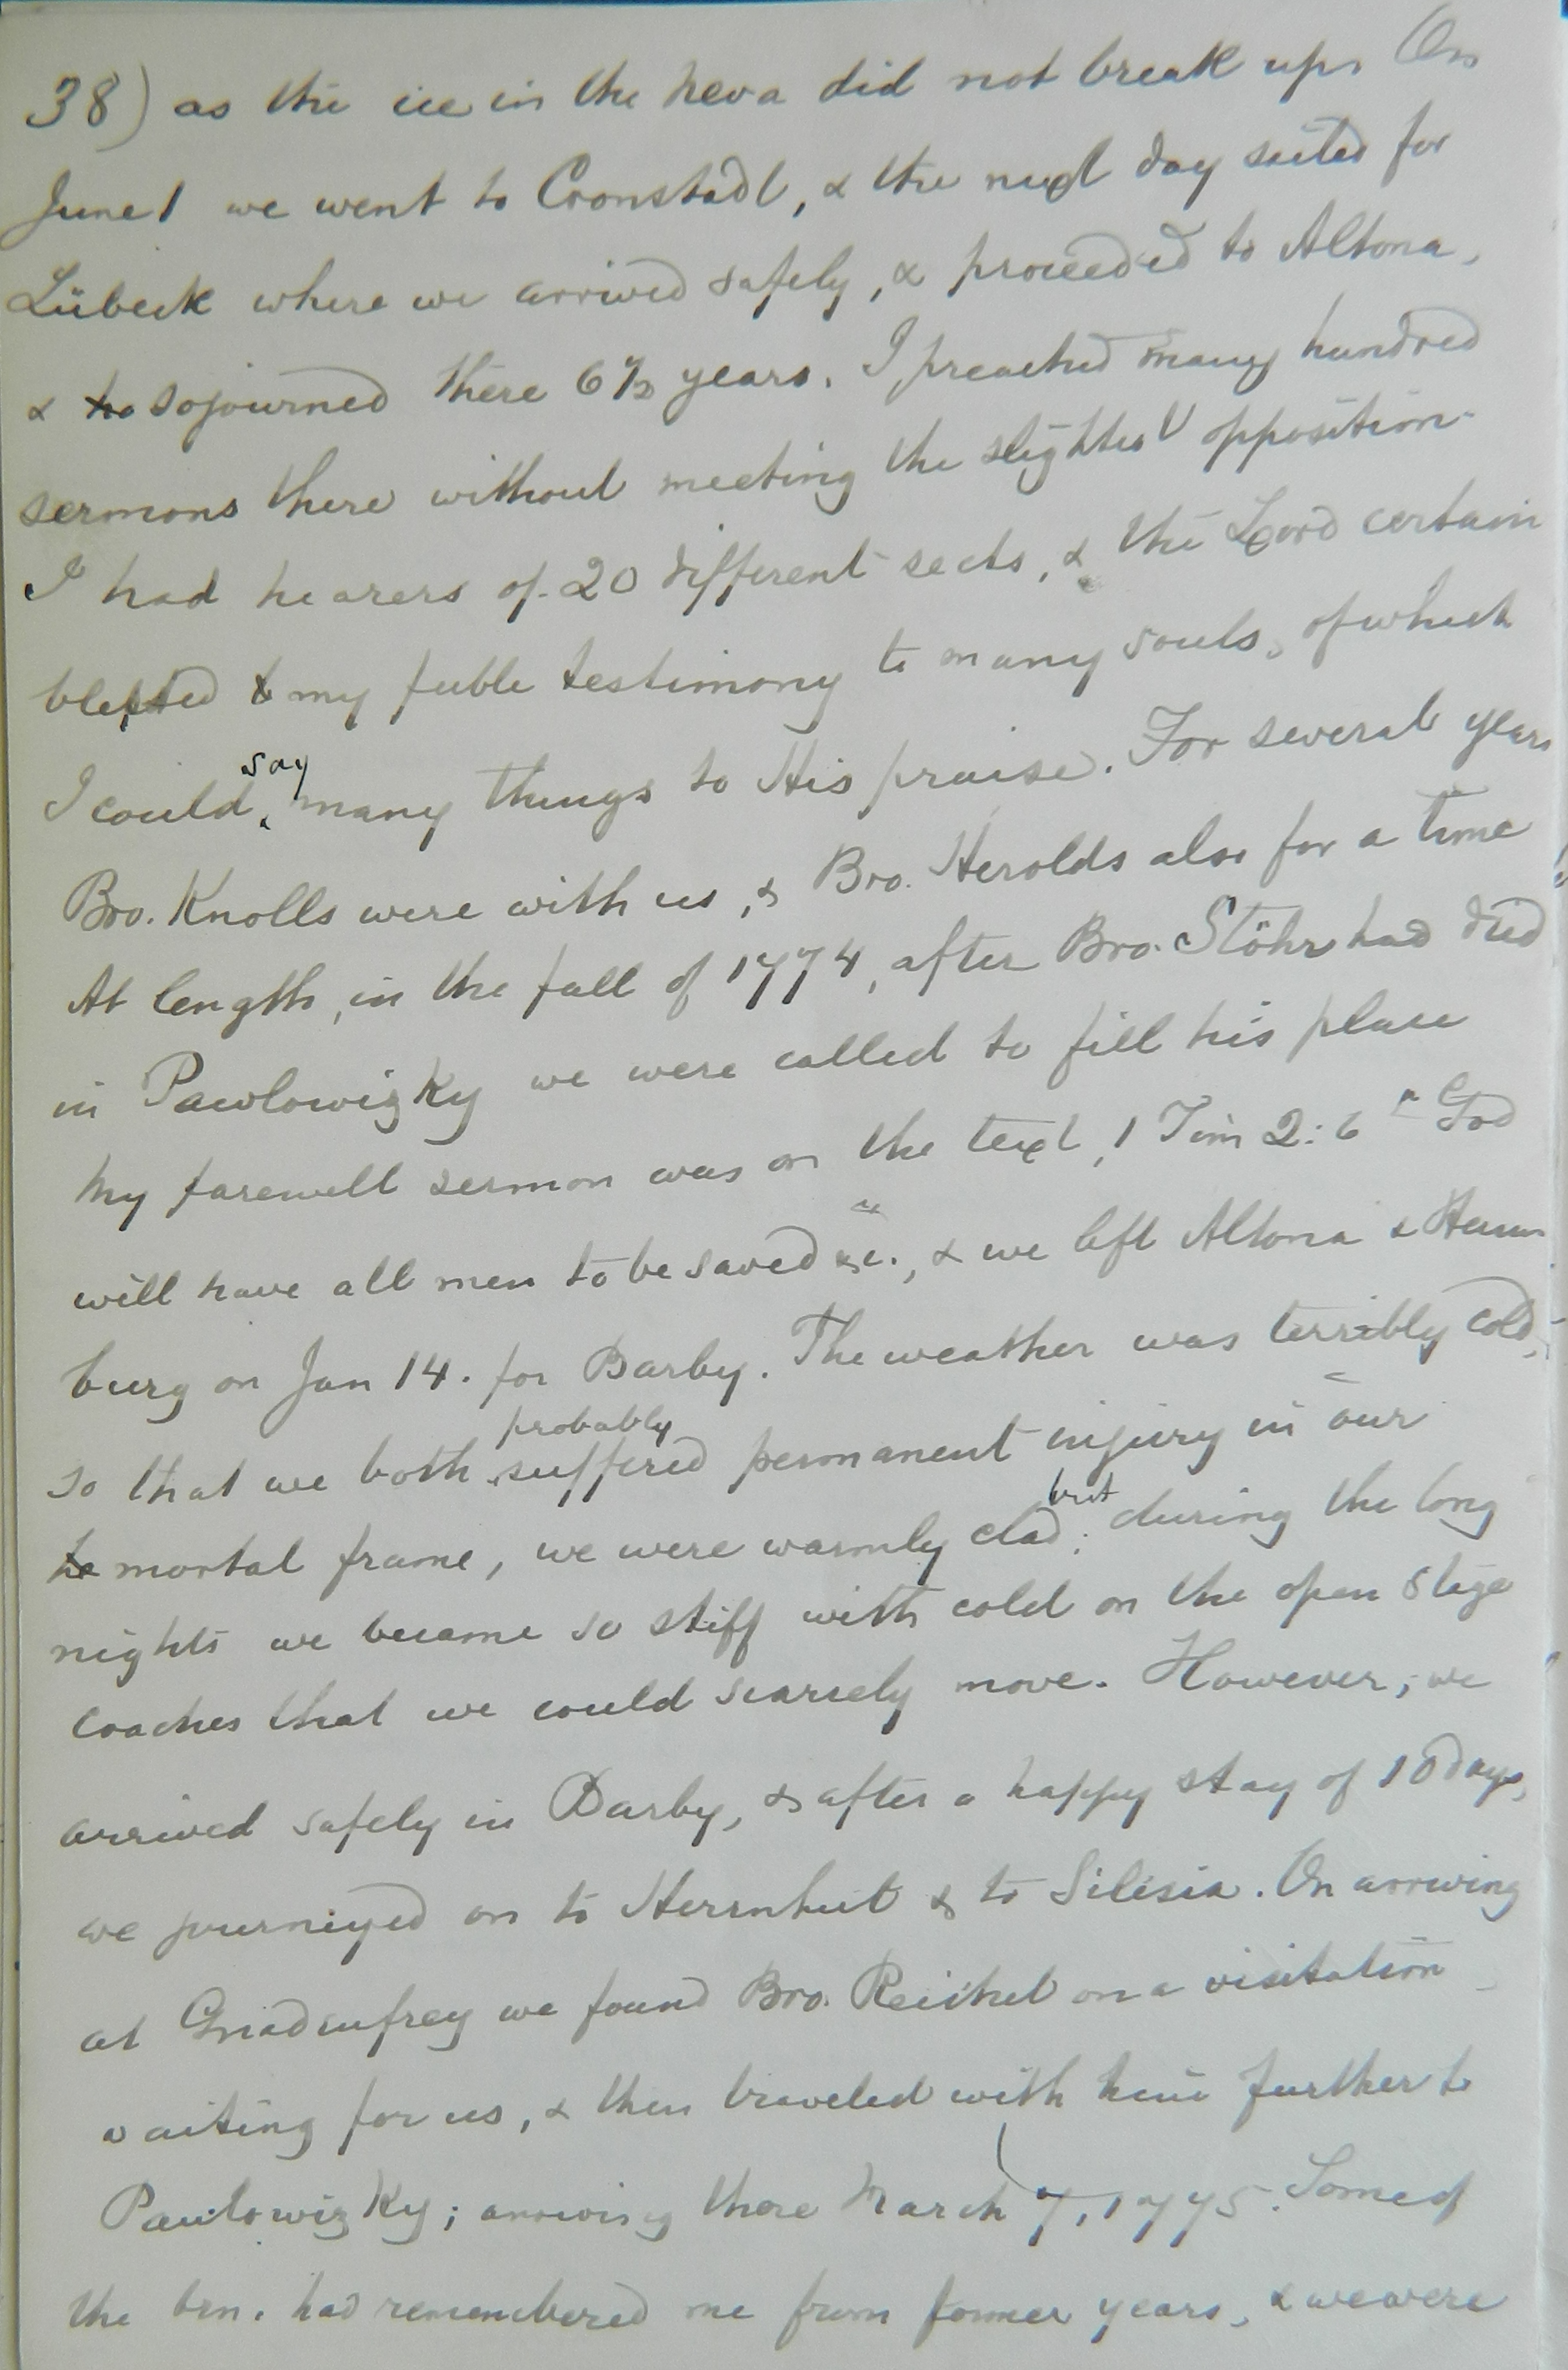 38) as the ice in the Neva did not break up. On
June 1 we went to Cronstadt, & the next day sailed for
Lübeck where we arrived safely, & proceeded to Altona,
& sojourned there 6½ years. I preached many hundred
sermons there without meeting the slightest opposition.
I had hearers of 20 different sects, & the Lord certain
blessed my feeble testimony to many souls, of which
I could say many things to His praise. For several years
Bro. Knolls were with us, & Bro. Herolds also for a time
At length, in the fall of 1774, after Bro. Stöhr had died
in Pawlowizky we were called to fill his place
My farewell sermon was on the text, 1 Tim 2:6 "God
will have all men to be saved" &c., & we left Altona & Ham
burg on Jan 14. for Barby. The weather was terribly cold,
so that we both probably suffered permanent injury in our
mortal frame, we were warmly clad; but during the long
nights we became so stiff with cold on the open stage
coaches that we could scarcely move. However, we
arrived safely in Barby, & after a happy stay of 10 days,
we journeyed on to Herrnhut & to Silesia. On arriving
at Gnadenfrey we found Bro. Reichel on a visitation
waiting for us, & then traveled with him further to
Pawlowizky; arriving there March 7, 1775. Some of
the brn. had remembered me from former years, & we were